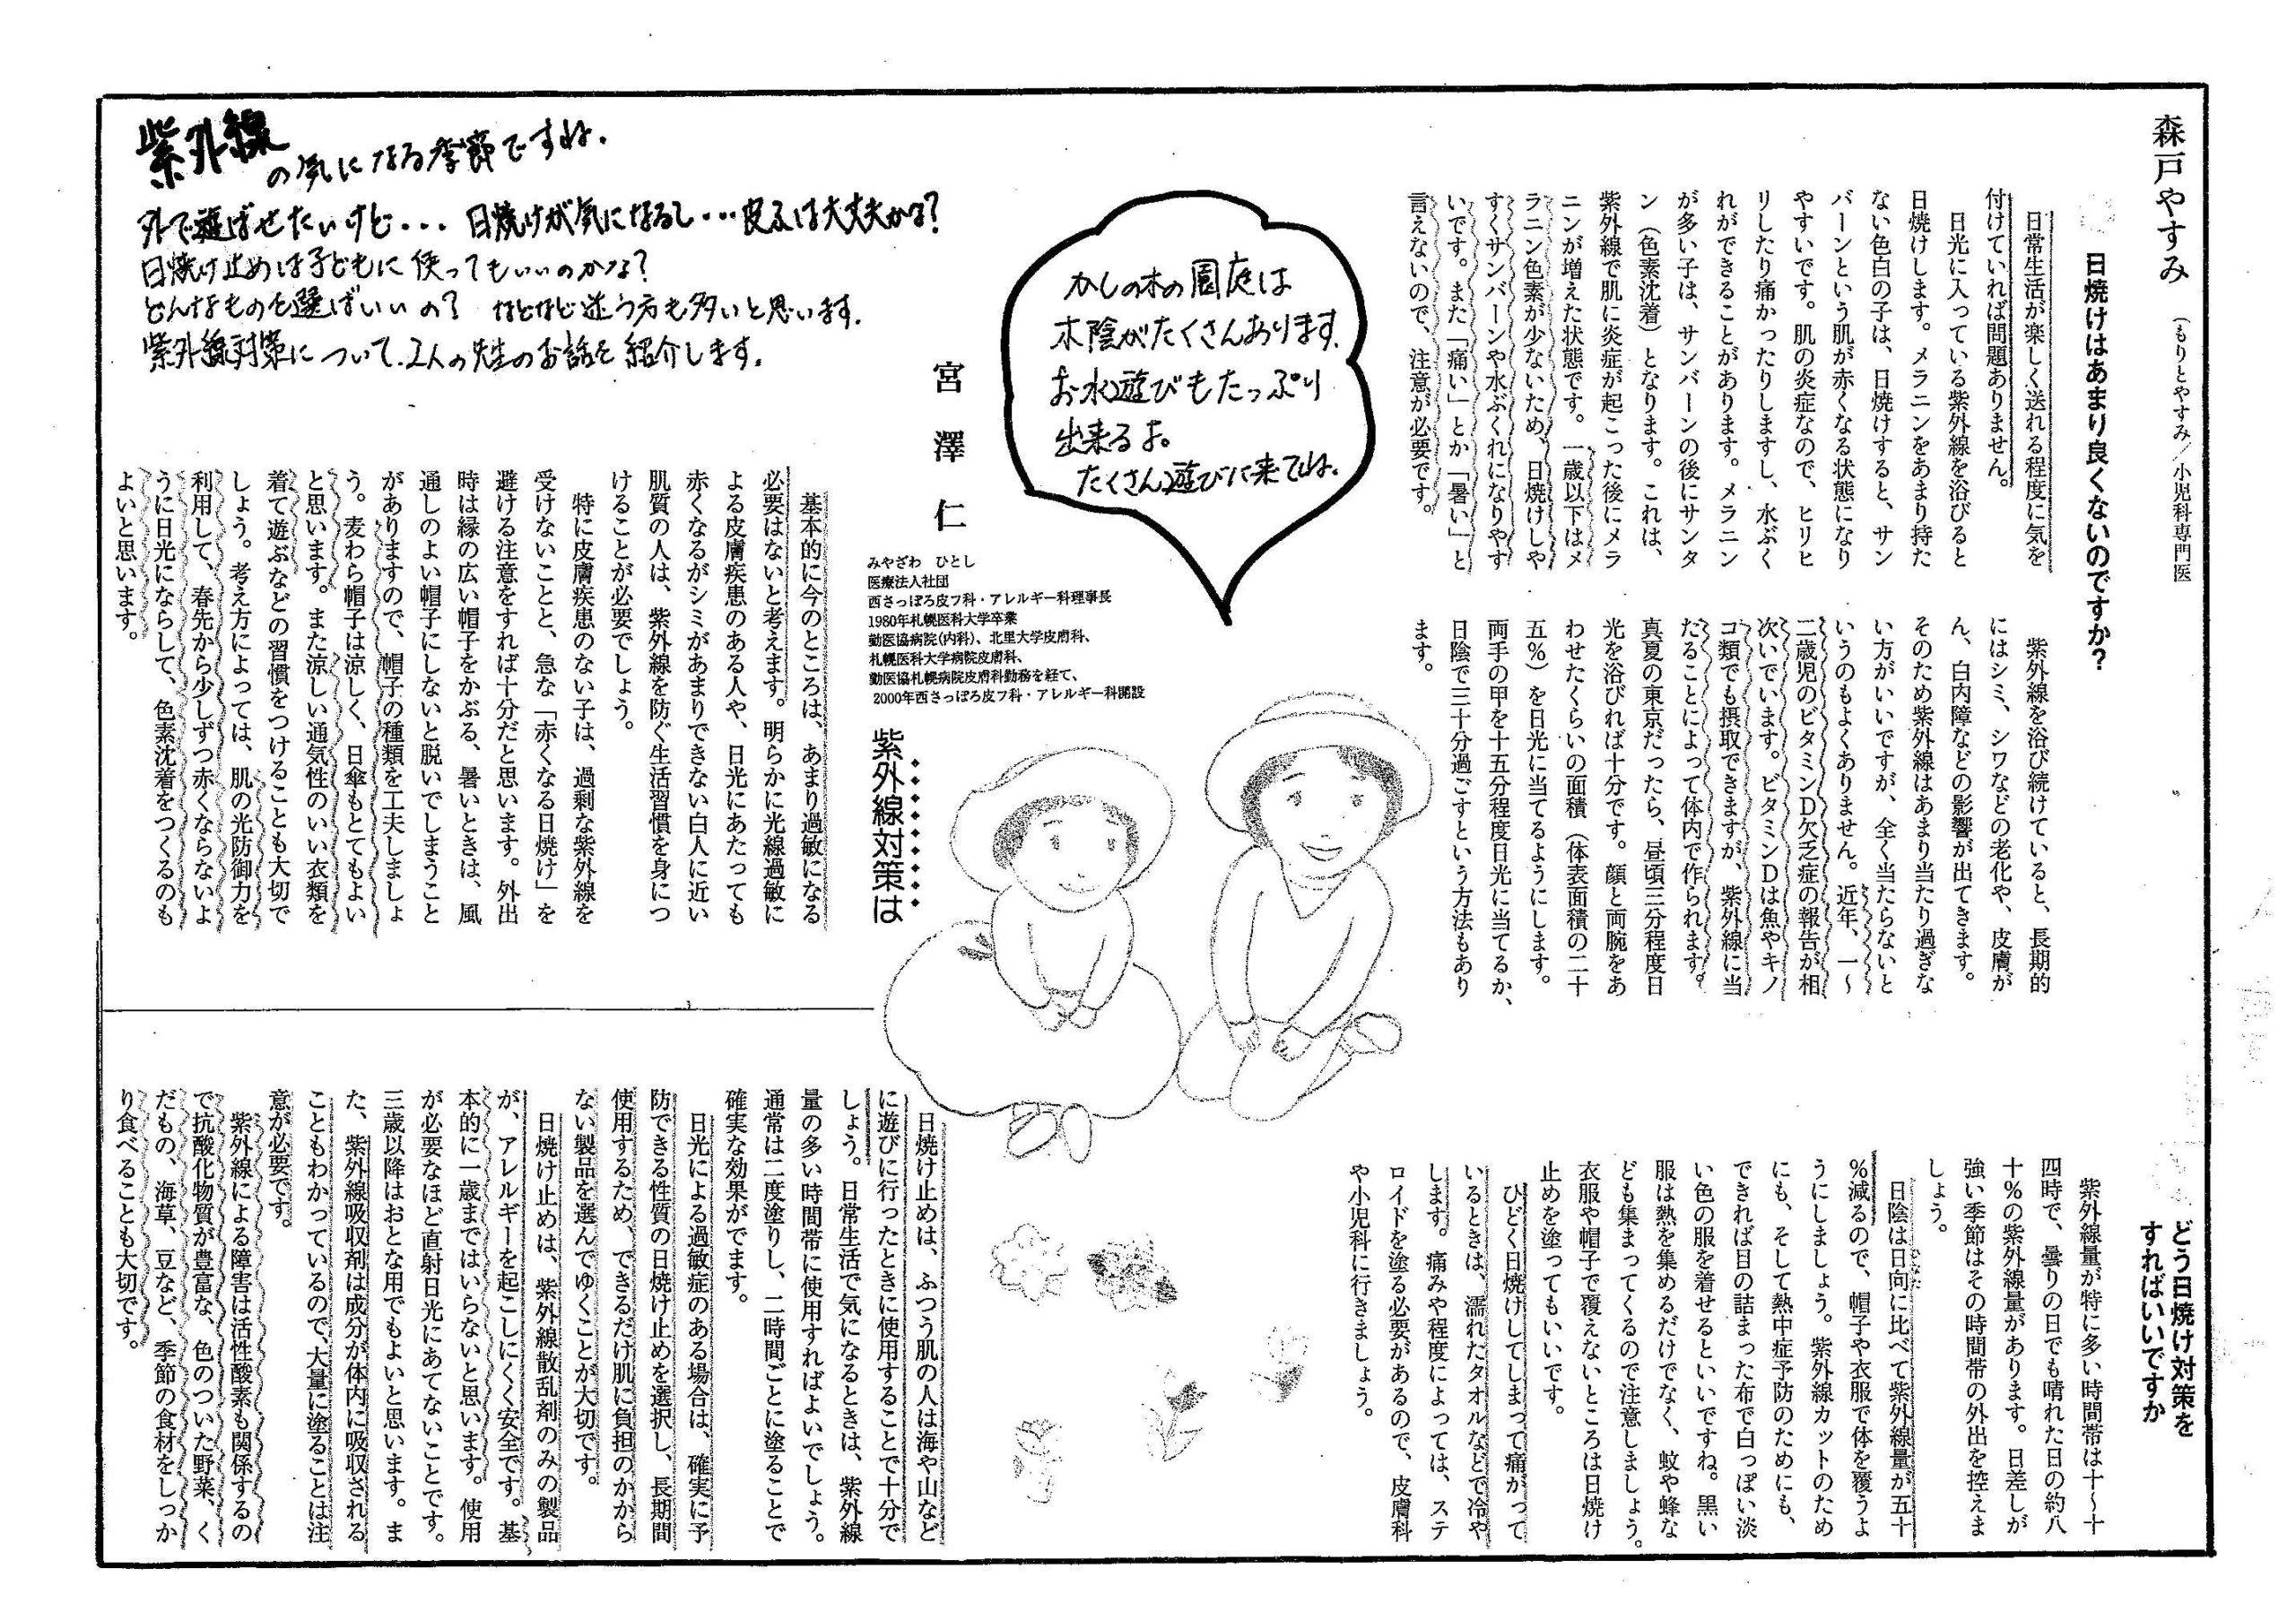 紫外線の気になる季節ですね.
外で遊ばせたいけど... 日焼けが気になるし...皮ふは大丈夫かな?
日焼け止めは子どもに使ってもいいのかな?
どんなものを選ばいいの? などなど迷う方も多いと思います.
紫外線対策について.2人の先生のお話を紹介します.
かしの木の園庭は
木陰がたくさんあります.
お水遊びもたっぷり
出来るよ。
たくさん遊びに来てね.
森戸やすみ(もりとやすみ/小児科専門医
日焼けはあまり良くないのですか?
日常生活が楽しく送れる程度に気を
付けていれば問題ありません。
日光に入っている紫外線を浴びると
日焼けします。メラニンをあまり持た
ない色白の子は、日焼けすると、サン
バーンという肌が赤くなる状態になり
やすいです。肌の炎症なので、ヒリヒ
リしたり痛かったりしますし、水ぶく
れができることがあります。メラニン
が多い子は、サンバーンの後にサンタ
ン(色素沈着)となります。これは、
紫外線で肌に炎症が起こった後にメラ
ニンが増えた状態です。一歳以下はメ
ラニン色素が少ないため、日焼けしや
すくサンバーンや水ぶくれになりやす
いです。また「痛い」とか「暑い」と
言えないので、注意が必要です。
紫外線を浴び続けていると、長期的
にはシミ、シワなどの老化や、皮膚が
ん、白内障などの影響が出てきます。
そのため紫外線はあまり当たり過ぎな
い方がいいですが、全く当たらないと
いうのもよくありません。近年、一~
二歳児のビタミンD欠乏症の報告が相
次いでいます。ビタミンDは魚やキノ
コ類でも摂取できますが、紫外線に当
たることによって体内で作られます。
真夏の東京だったら、昼頃三分程度日
光を浴びれば十分です。顔と両腕をあ
わせたくらいの面積(体表面積の二十
五%)を日光に当てるようにします。
両手の甲を十五分程度日光に当てるか、
日陰で三十分過ごすという方法もあり
ます。
どう日焼け対策を
すればいいですか
紫外線量が特に多い時間帯は十~十
四時で、曇りの日でも晴れた日の約八
十%の紫外線量があります。日差しが
強い季節はその時間帯の外出を控えま
しょう。
日陰は日向に比べて紫外線量が五十
%減るので、帽子や衣服で体を覆うよ
うにしましょう。紫外線カットのため
にも、そして熱中症予防のためにも、
できれば目の詰まった布で白っぽい淡
い色の服を着せるといいですね。黒い
服は熱を集めるだけでなく、蚊や蜂な
ども集まってくるので注意しましょう。
衣服や帽子で覆えないところは日焼け
止めを塗ってもいいです。
ひどく日焼けしてしまって痛がって
いるときは、濡れたタオルなどで冷や
します。痛みや程度によっては、ステ
ロイドを塗る必要があるので、皮膚科
や小児科に行きましょう。
宮澤 仁
みやざわ ひとし
医療法人社団
西さっぽろ皮フ科・アレルギー科理事長
1980年札幌医科大学卒業
勤医協病院(内科)、北里大学皮膚科、
札幌医科大学病院皮膚科、
勤医協札幌病院皮膚科勤務を経て、
2000年西さっぽろ皮フ科・アレルギー科開設
紫外線対策は
基本的に今のところは、あまり過敏になる
必要はないと考えます。明らかに光線過敏に
よる皮膚疾患のある人や、日光にあたっても
赤くなるがシミがあまりできない白人に近い
肌質の人は、紫外線を防ぐ生活習慣を身につ
けることが必要でしょう。
特に皮膚疾患のない子は、過剰な紫外線を
受けないことと、急な「赤くなる日焼け」を
避ける注意をすれば十分だと思います。外出
時は縁の広い帽子をかぶる、暑いときは、風
通しのよい帽子にしないと脱いでしまうこと
がありますので、帽子の種類を工夫しましょ
う。麦わら帽子は涼しく、日傘もとてもよい
と思います。また涼しい通気性のいい衣類を
着て遊ぶなどの習慣をつけることも大切で
しょう。考え方によっては、肌の光防御力を
利用して、春先から少しずつ赤くならないよ
うに日光にならして、色素沈着をつくるのも
よいと思います。
日焼け止めは、ふつう肌の人は海や山など
に遊びに行ったときに使用することで十分で
しょう。日常生活で気になるときは、紫外線
量の多い時間帯に使用すればよいでしょう。
通常は二度塗りし、二時間ごとに塗ることで
確実な効果がでます。
日光による過敏症のある場合は、確実に予
防できる性質の日焼け止めを選択し、長期間
使用するため、できるだけ肌に負担のかから
ない製品を選んでゆくことが大切です。
日焼け止めは、紫外線散乱剤のみの製品
が、アレルギーを起こしにくく安全です。基
本的に一歳まではいらないと思います。使用
が必要なほど直射日光にあてないことです。
三歳以降はおとな用でもよいと思います。ま
た、紫外線吸収剤は成分が体内に吸収される
こともわかっているので、大量に塗ることは注
意が必要です。
紫外線による障害は活性酸素も関係するの
で抗酸化物質が豊富な、色のついた野菜、く
だもの、海草、豆など、季節の食材をしっか
り食べることも大切です。